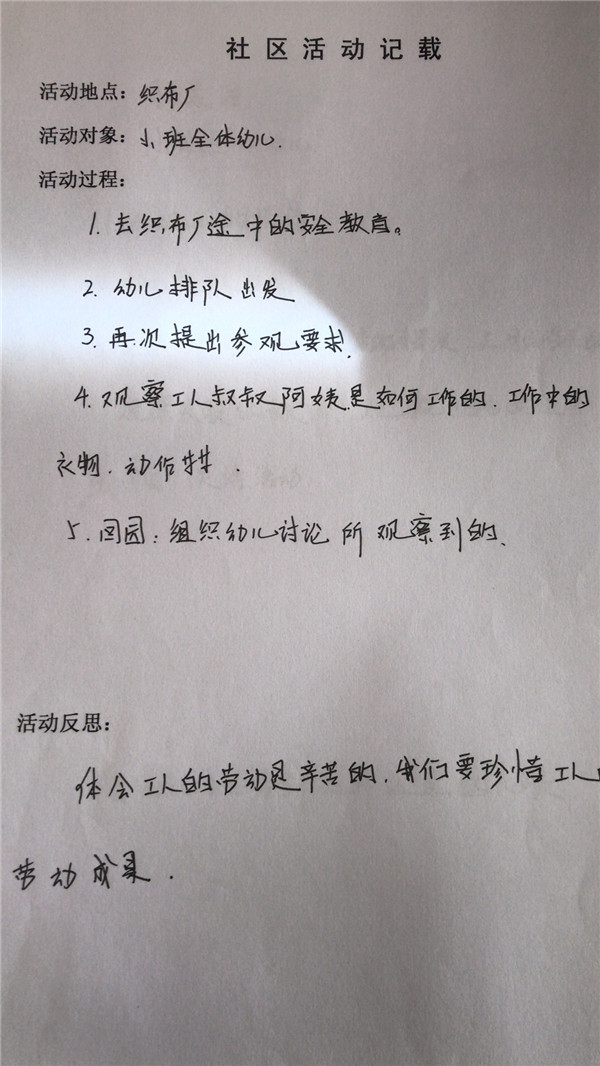 社区活动记载
活动地点：织布厂
活动对象：小班全体幼儿.
活动过程：
1. 去织布厂途中的安全教育。
2. 幼儿排队出发
3. 再次提出参观要求.
4. 观察工人叔叔阿姨是如何工作的. 工作中的
衣物. 动作
5. 回园：组织幼儿讨论所观察到的.
活动反思：
体会工人的劳动是辛苦的. 我们要珍惜工人
劳动成果.